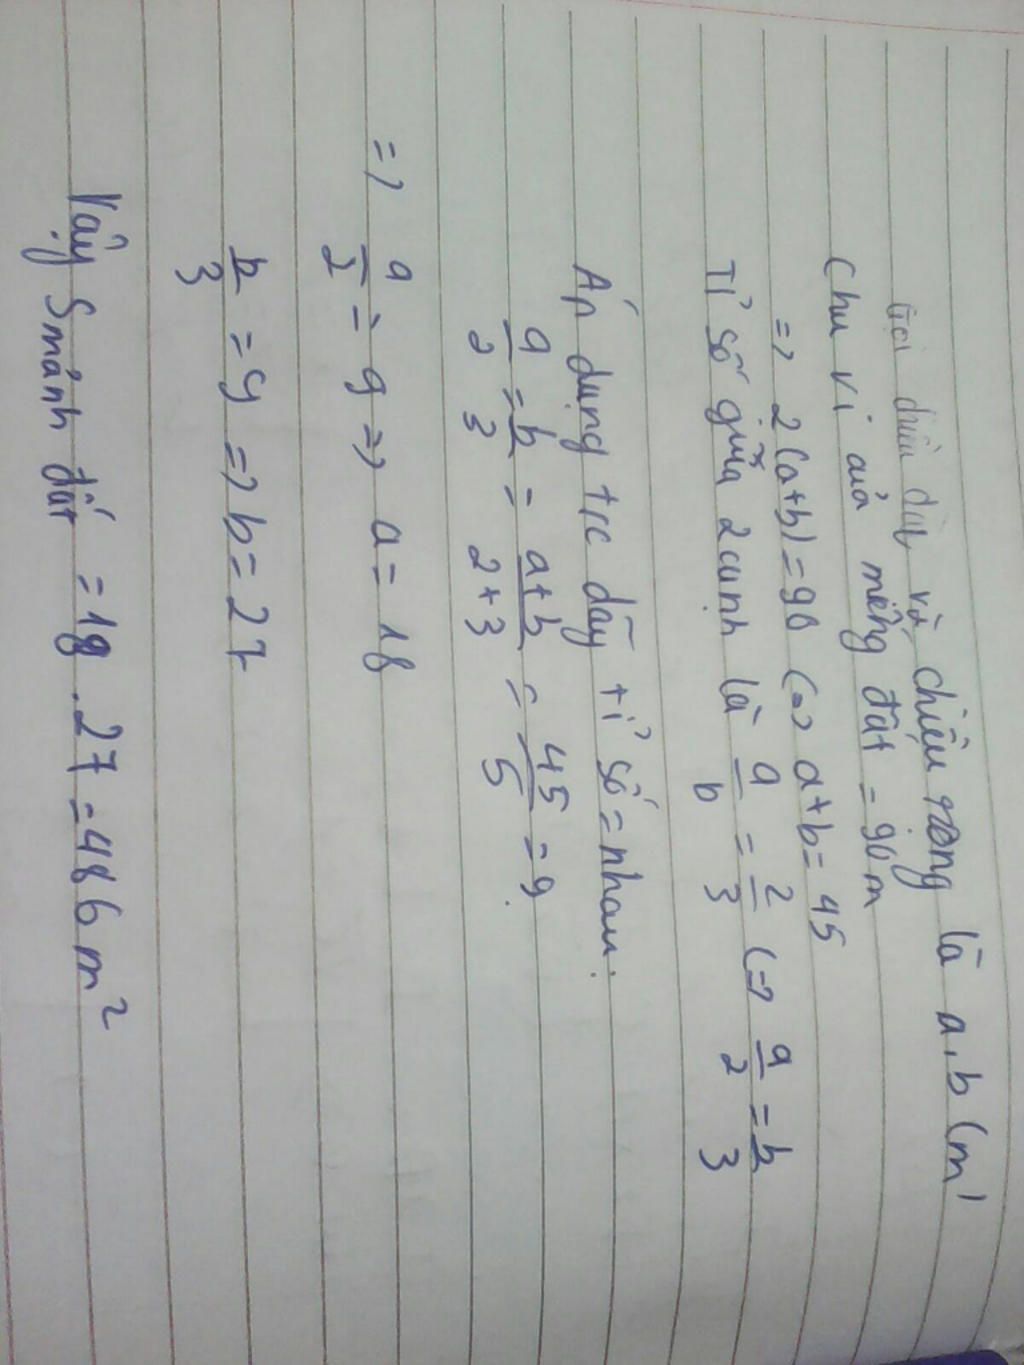 Gọi chiều dài và chiều rộng là a, b (m)
Chu vi của mảng đất = 90 m
=> 2 (a+b) = 90 <=> a+b = 45
Tỉ số giữa 2 cạnh là a/b = 2/3 <=> a/2 = b/3
Áp dụng t/c dãy tỉ số = nhau:
a/2 = b/3 = a+b/2+3 = 45/5 = 9.
=> a/2 = 9 => a = 18
b/3 = 9 => b = 27
Vậy S mảnh đất = 18 . 27 = 486 m²